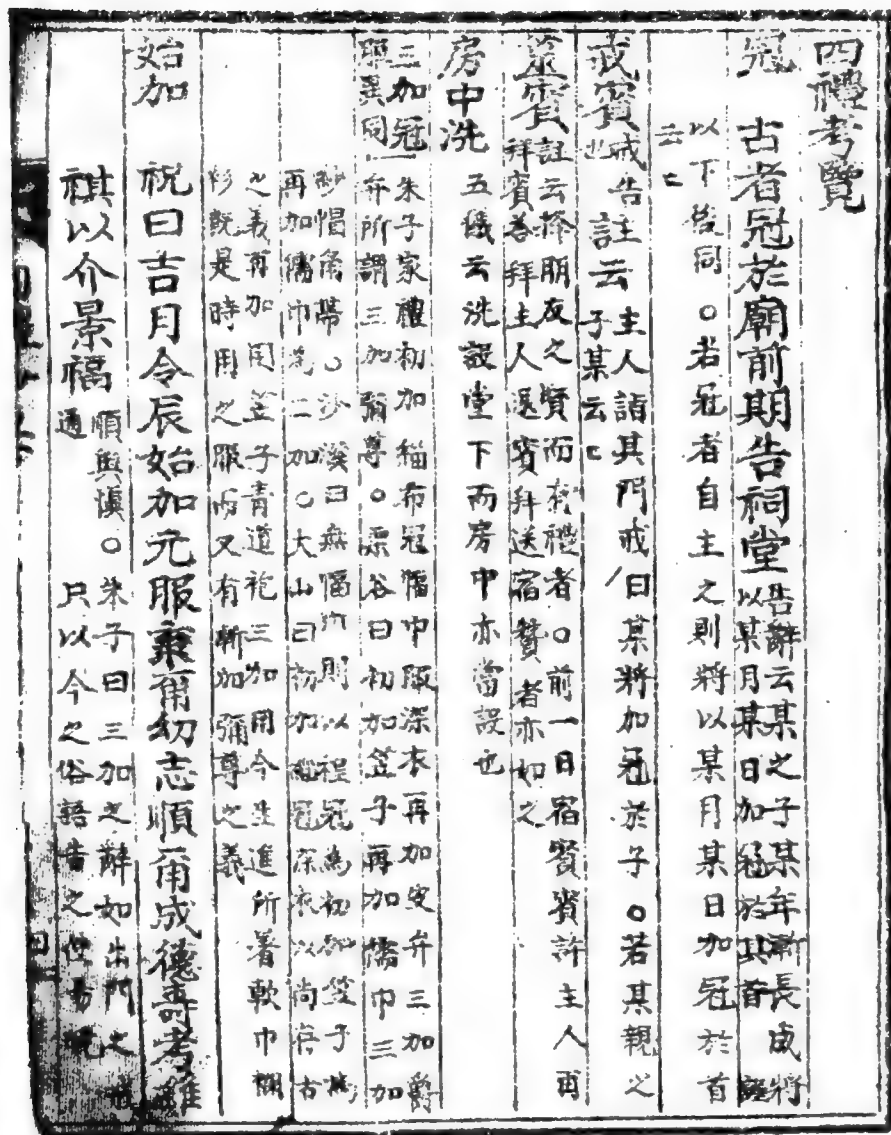 四禮考覽
冠 古者冠於廟前期告祠堂 告辭云某之子某年漸長成將
以某月某日加冠於其首 謹
以下後同○若冠者自主之則將以某月某日加冠於首
云〻
戒賓 戒告也 註云 主人詣其門戒曰某將加冠於子○若某親之
子某云〻
筮賓 註云擇朋友之賢而有禮者○前一日宿賓賓許主人再
拜賓荅拜主人退賓拜送宿贊者亦如之
房中洗 五儀云洗設堂下而房中亦當設也
三加冠服異同 朱子家禮初加緇布冠幅巾服深衣再加皮弁三加爵
弁所謂三加彌尊○栗谷曰初加笠子再加幞巾三加
紗帽角帶○沙溪曰無幅巾則以程冠爲初加笠子爲
再加幞巾爲三加○大山曰初加緇冠深衣以尚存古
之義再加用笠子青道袍三加用今生進所着軟巾襴
衫旣是時用之服而又有漸加彌尊之義
始加 祝曰吉月令辰始加元服棄爾幼志順爾成德壽考維
祺以介景福 順與愼通○朱子曰三加之辭如出門之
只以今之俗語告之使易曉